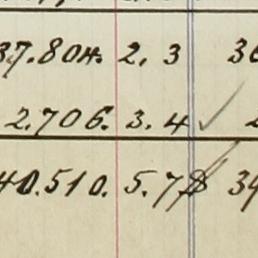 37.804. 2. 3 36
2.706. 3. 4 ✓
40.510. 5. 7 39